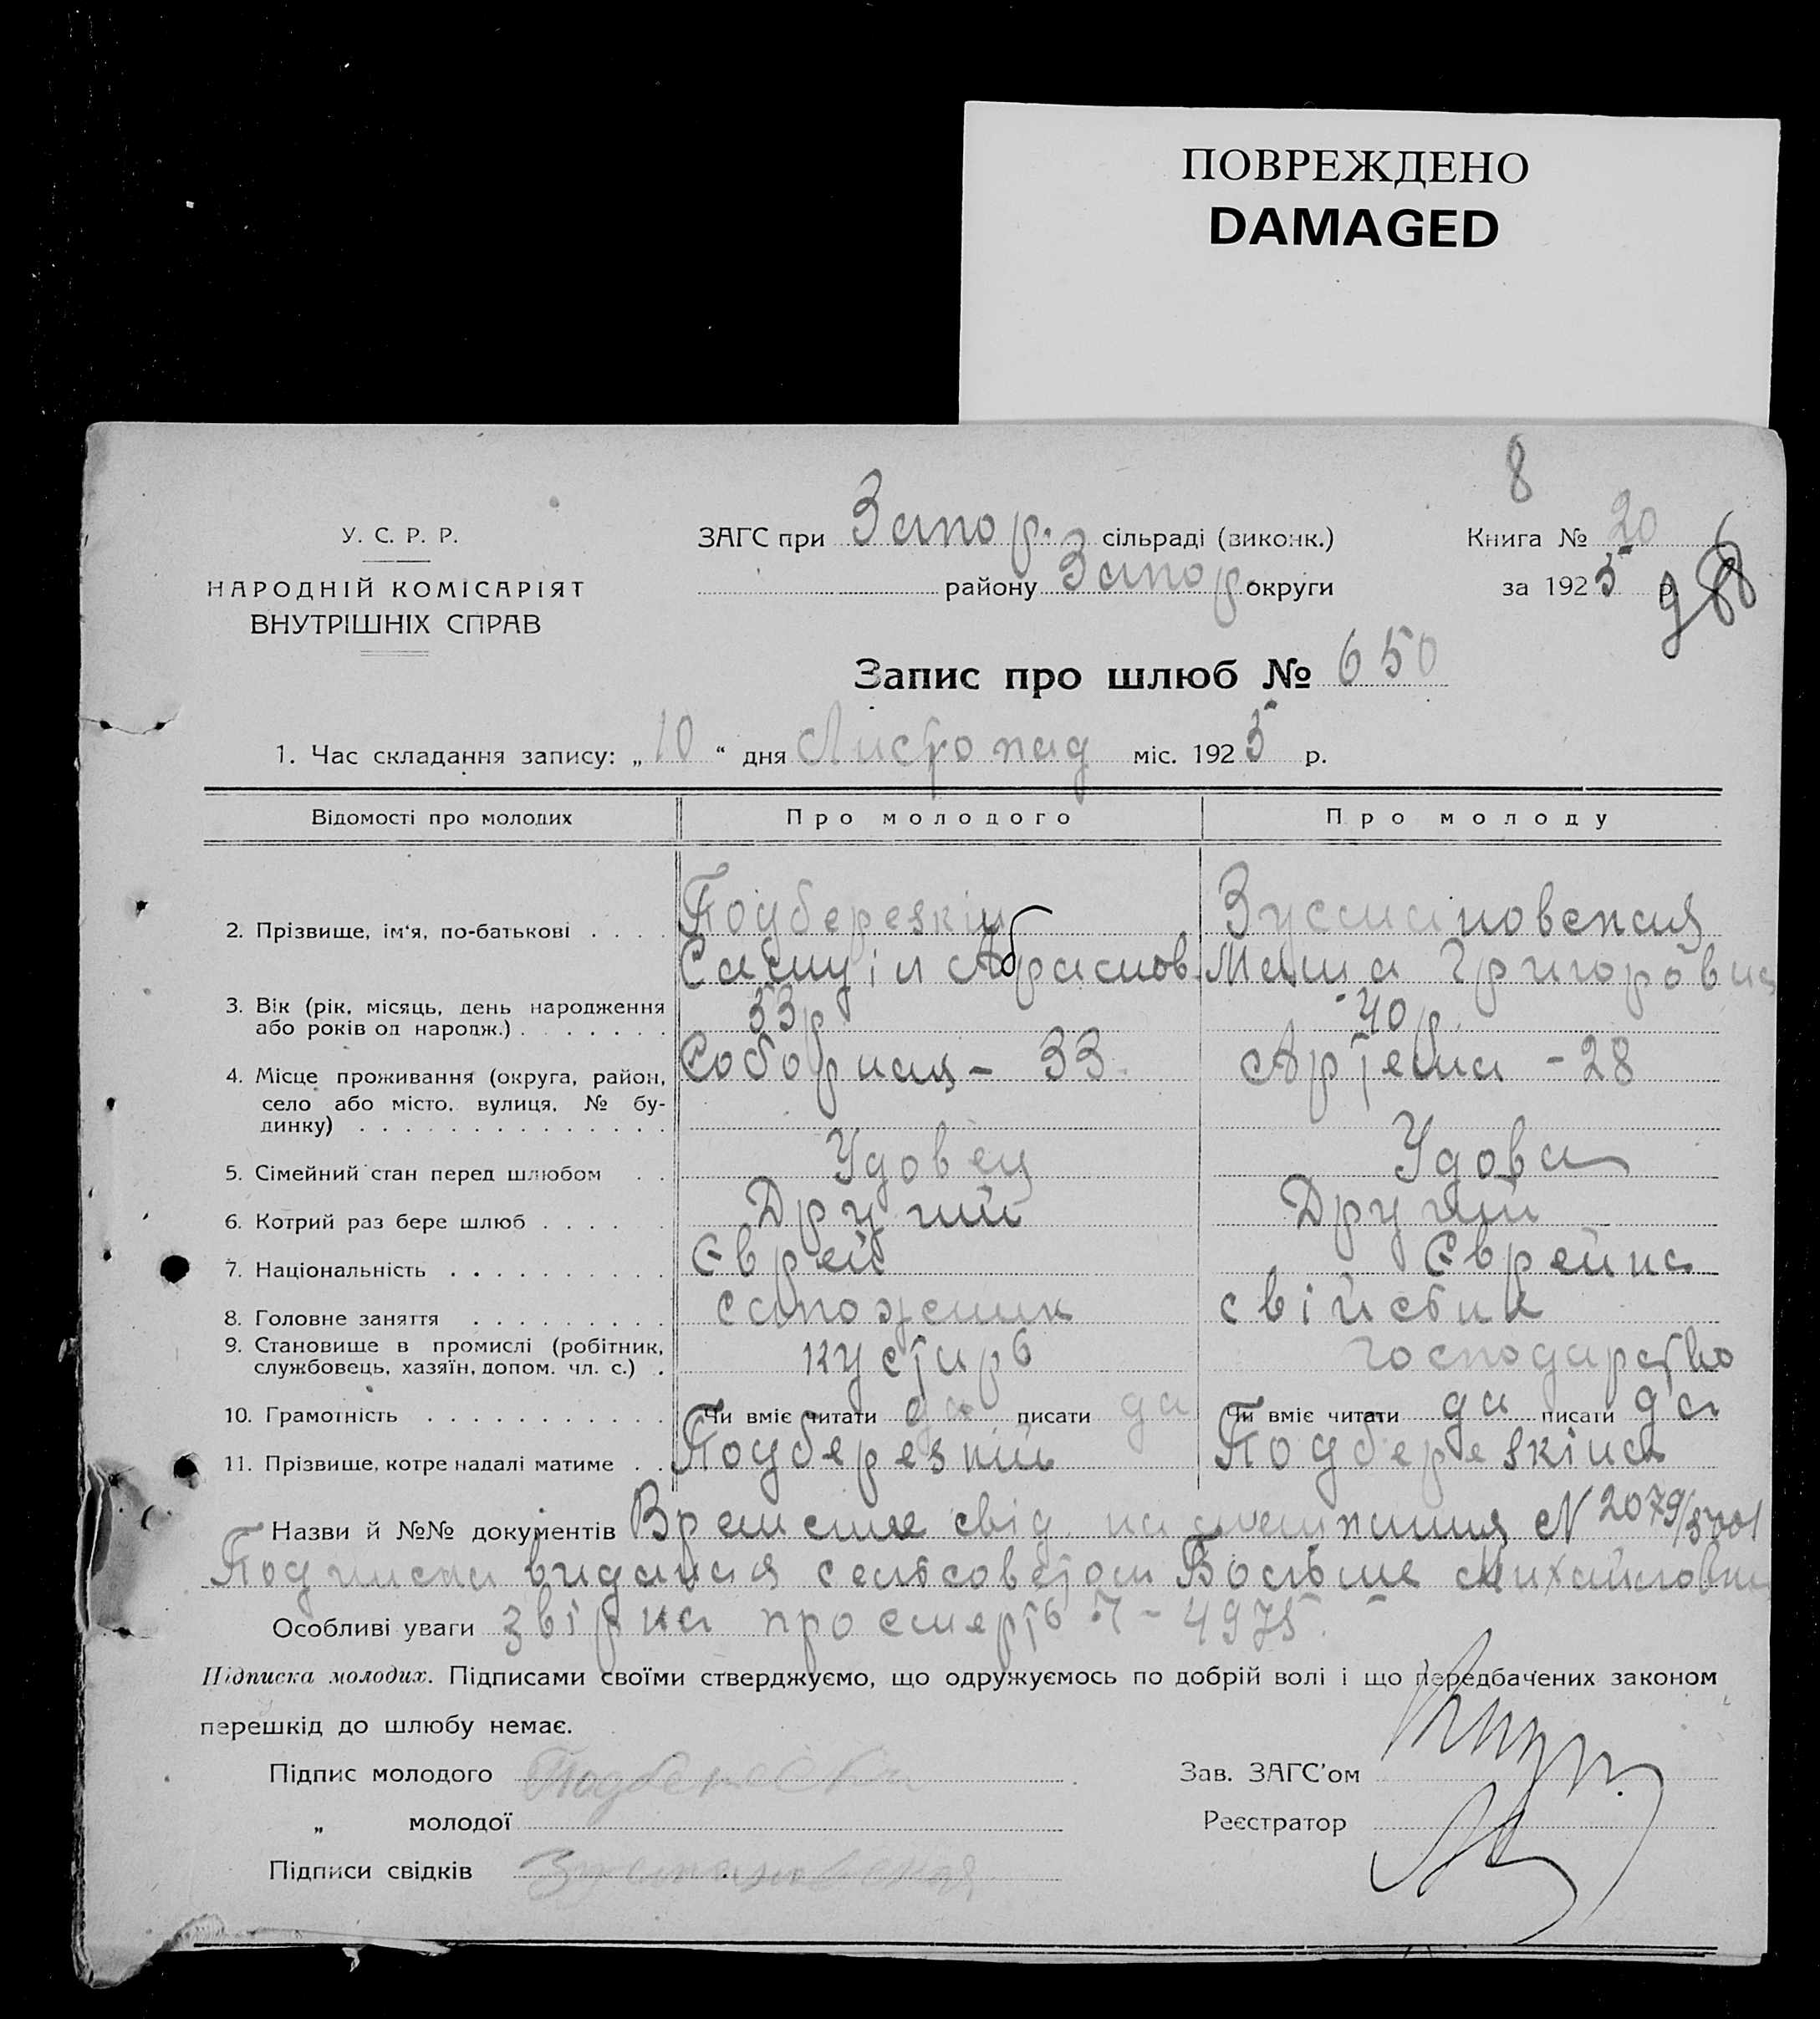 ПОВРЕЖДЕНО
DAMAGED
8
У. С. Р. Р.
НАРОДНІЙ КОМІСАРІЯТ
ВНУТРІШНІХ СПРАВ
ЗАГС при Запор. сільраді (виконк.)
району Запор. округи
Книга № 20
за 1925 р.
Запис про шлюб № 650
1. Час складання запису: „10“ дня Листопад міс. 1925 р.
Відомості про молодих Про молодого Про молоду
2. Прізвище, ім'я, по-батькові . . . . Подберезкін Зусмановская
Самуіл Абрамов. Маша Григоровна
3. Вік (рік, місяць, день народження 53 р 40 р.
або років од народж.) . . . . . . .
4. Місце проживання (округа, район, Соборная – 33. Артема – 28
село або місто, вулиця, № бу-
динку) . . . . . . . . . . . . . .
5. Сімейний стан перед шлюбом . . Удовец Удова
6. Котрий раз бере шлюб . . . . . Другий Другий
7. Національність . . . . . . . . . . Єврей Єврейка
8. Головне заняття . . . . . . . . . сапожник свійстне
9. Становище в промислі (робітник, кустарь господарство
службовець, хазяїн, допом. чл. с.) .
10. Грамотність . . . . . . . . . . . Чи вміє читати да писати да Чи вміє читати да писати да
11. Прізвище, котре надалі матиме . . Подберезкін Подберезкіна
Назви й №№ документів свід. на N 2079/
Подписка видания сельсоветом Больше Михайловки
Особливі уваги звірка про смерть 7 – 4975.
Підписка молодих. Підписами своїми стверджуємо, що одружуємось по добрій волі і що передбачених законом
перешкід до шлюбу немає.
Підпис молодого Зав. ЗАГС'ом
„ молодої Реєстратор
Підписи свідків Зусмановская